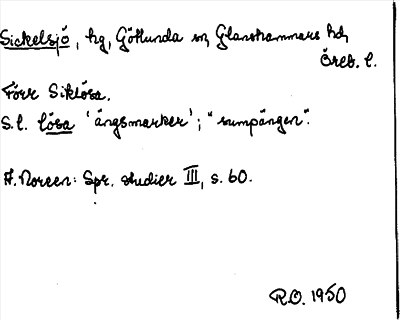 Sickelsjö, hg, Götlunda sn, Glanshammars hd,
Öreb. l.
Förr Siklösa.
S.l. lösa 'ängsmarker'; "sumpängen".
A. Noreen: Spr. studier III, s. 60.
R.O. 1950